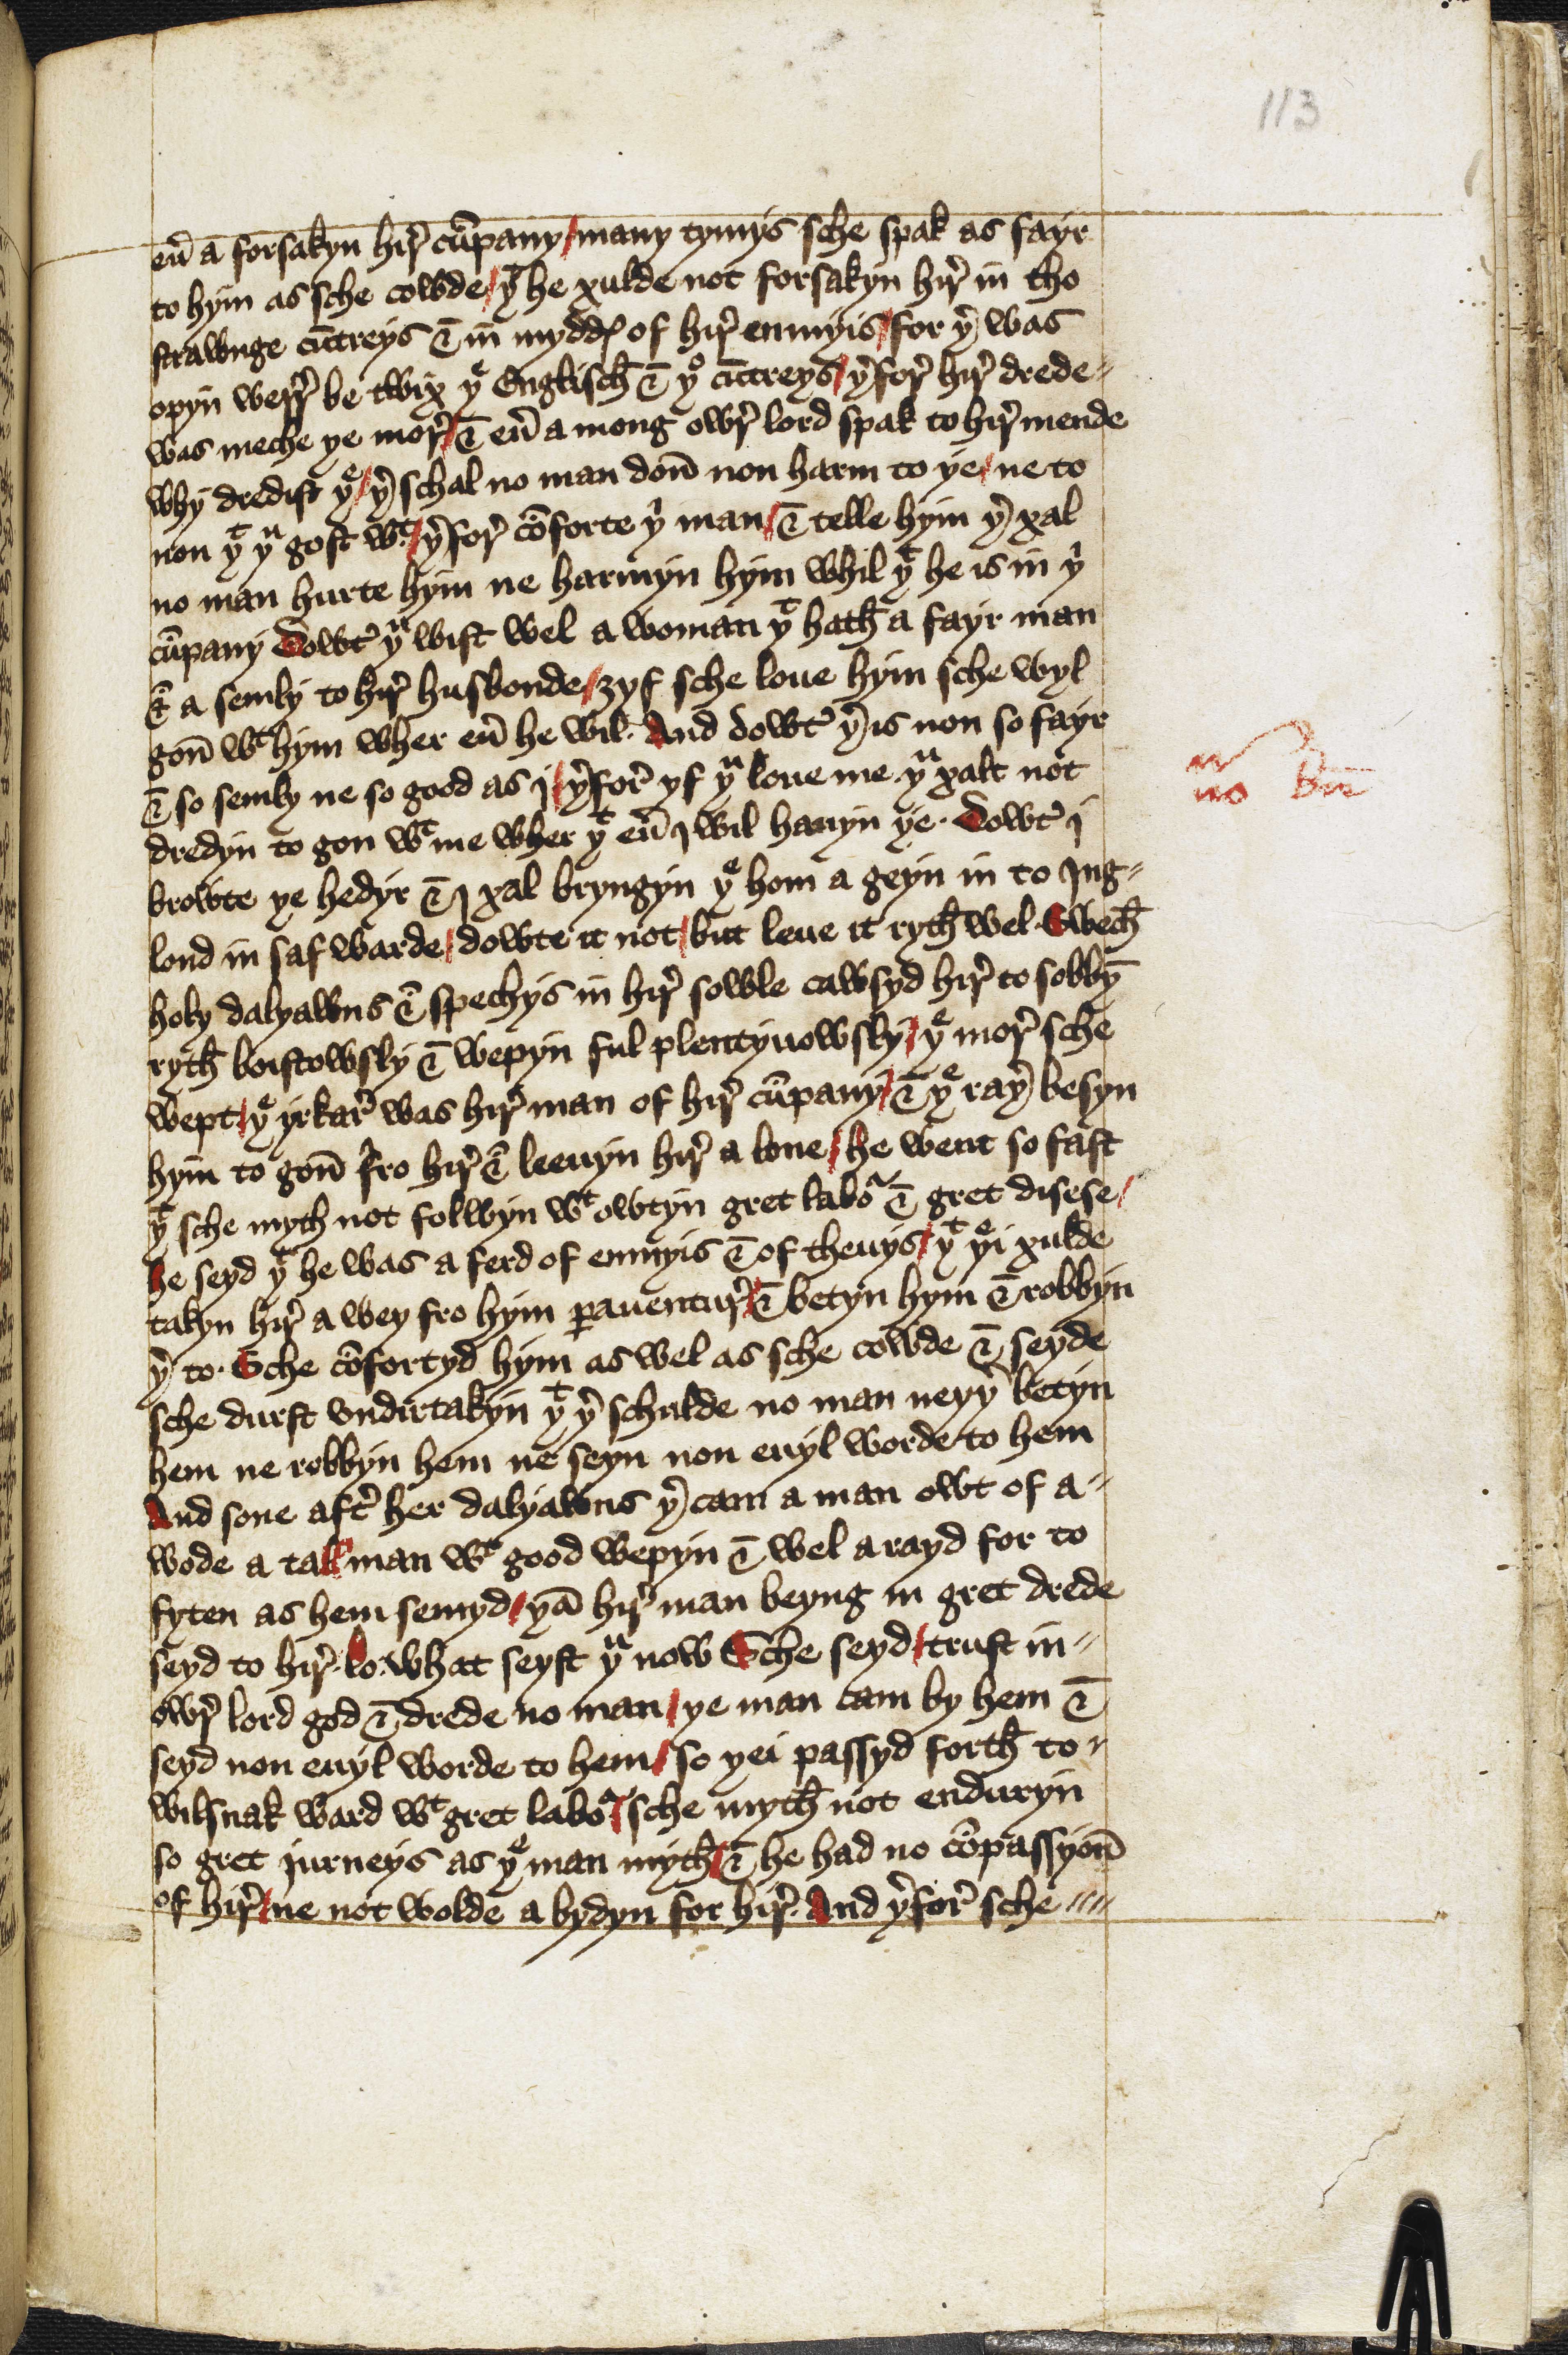 113
eu̅ a forsakyn hir̉ cu̅pany / many tymys sche spak as fayr
to hym as sche cowde / yᵗ he xulde not forsakyn hir̉ in tho
strawnge cu̅treys & in myddꝭ of hir̉ enmyis / for yer̉ was
opyn werr̉ be twix yᵉ Englisch & yᵒ cu̅treys / yer̉for̉ hir̉ drede〃
was meche ye mor̉ / & eu̅ a mong owr̉ lord spak to hir̉ mende
why dredist yᵉ / yer̉ schal no man don̅ non harm to ye / ne to
non yᵗ yᵘ gost wᵗ / yer̉for̉ co̅forte yⁱ man / & telle hym yer̉ xal
no man hurte hym ne harmyn hym whil yᵗ he is in yⁱ
cu̅pany Dowt̉ yᵘ wist wel a woman yᵗ hath a fayr man
& a semly to hir̉ husbonde / ȝyf sche loue hym sche wyl
gon̅ wᵗ hym wher eu̅ he wil. And dowt̉ yer̉ is non so fayr
& so semly ne so good as I / yer̉for̉ yf yᵘ loue me yᵘ xalt not
dredyn to gon wᵗ me wher yᵗ eu̅ I wil hauyn ye. Dowt̉ I
browte ye hedyr & I xal bryngyn yᵉ hom a geyn in to Ing〃
lond in saf warde / dowte it not / but leue it ryth wel. Swech
holy dalyawns & spechys in hir̉ sowle cawsyd hir̉ to sobby̅
ryth boistowsly & wepyn ful plentyuowsly / yᵉ mor̉ sche
wept / yᵉ yrkar̉ was hir̉ man of hir̉ cu̅pany / & yᵉ rayer̉ besyn
hym to gon̅ fro hir̉ & leeuyn hir̉ a lone / he went so fast
yᵗ sche myth not folwyn wᵗ owtyn gret laboʳ & gret disese /
he seyd yᵗ he was a ferd of enmyis & of theuys / yᵗ yei xulde
takyn hir̉ a wey fro hym ꝑauentur̉ / & betyn hym & robbyn
yer̉ to. Sche co̅fortyd hym as wel as sche cowde & seyde
sche durst vndirtakyn yᵗ yer̉ schulde no man neyyer̉ betyn
hem ne robbyn hem ne seyn non euyl worde to hem
And sone aft̉ her dalyawns yer̉ cam a man owt of a〃
wode a tall man wᵗ good wepyn & wel arayd for to
fyten as hem semyd / ya̅ hir̉ man beyng in gret drede
seyd to hir̉. lo. what seyst yᵘ now Sche seyd / trust in〃
owr̉ lord god & drede no man / ye man cam by hem &
seyd non euyl worde to hem / so yei passyd forth to〃
wilsnak ward wᵗ gret laboʳ / sche myth not enduryn
so gret jurneys as yᵉ man myth / & he had no co̅passyon̅
of hir̉ / ne not wolde a bydyn for hir̉. And yer̉for̉ sche 〃〃